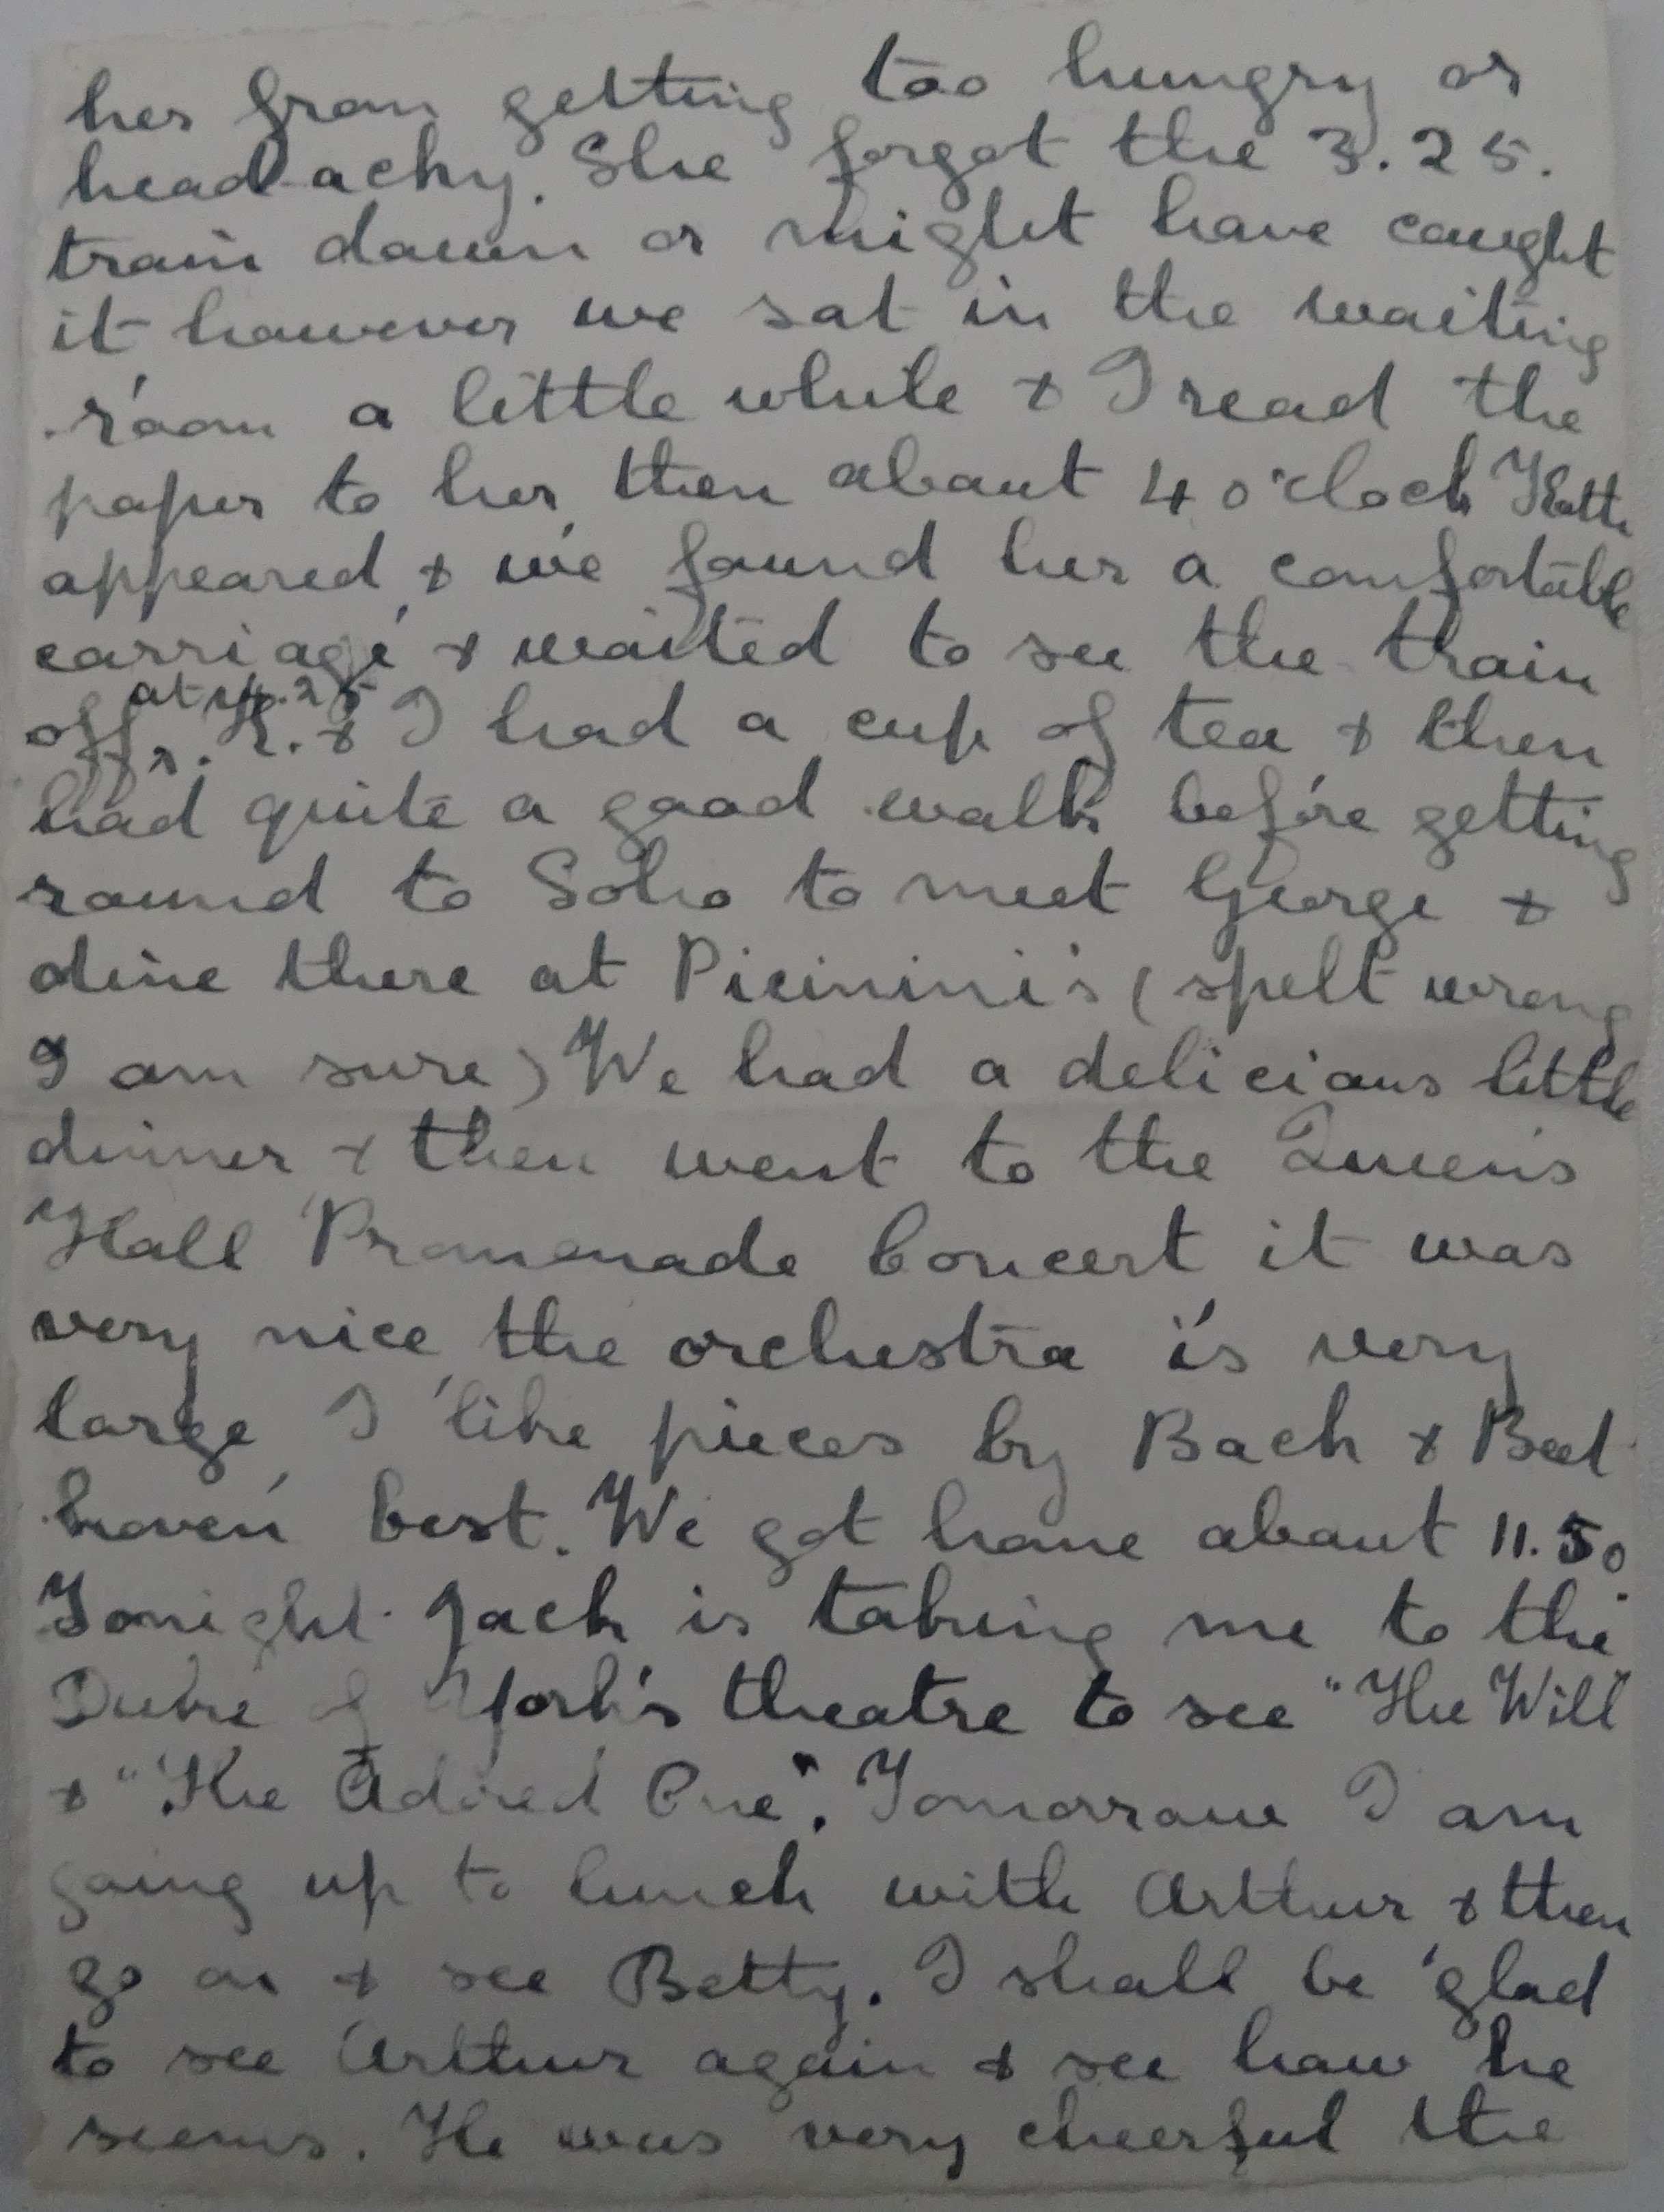 her from getting too hungry or
head-achy. She forgot the 3.25.
train down or might have caught
it however we sat in the waiting
room a little while & I read the
paper to her, then about 4 o'clock Kath
appeared & we found her a comfortable
carriage & waited to see the train
off at 4.25. K. & I had a cup of tea & then
had quite a good walk before getting
round to Soho to meet George &
dine there at Picinini's (spelt wrong
I am sure) We had a delicious little
dinner & then went to the Queen's
Hall Promenade Concert it was
very nice, the orchestra is very
large I like pieces by Bach & Beet
hoven best. We got home about 11.50
Tonight Jack is taking me to the
Duke of York's theatre to see "The Will
& "The Adored One". Tomorrow I am
going up to lunch with Arthur & then
go on & see Betty. I shall be glad
to see Arthur again & see how he
seems. He was very cheerful the